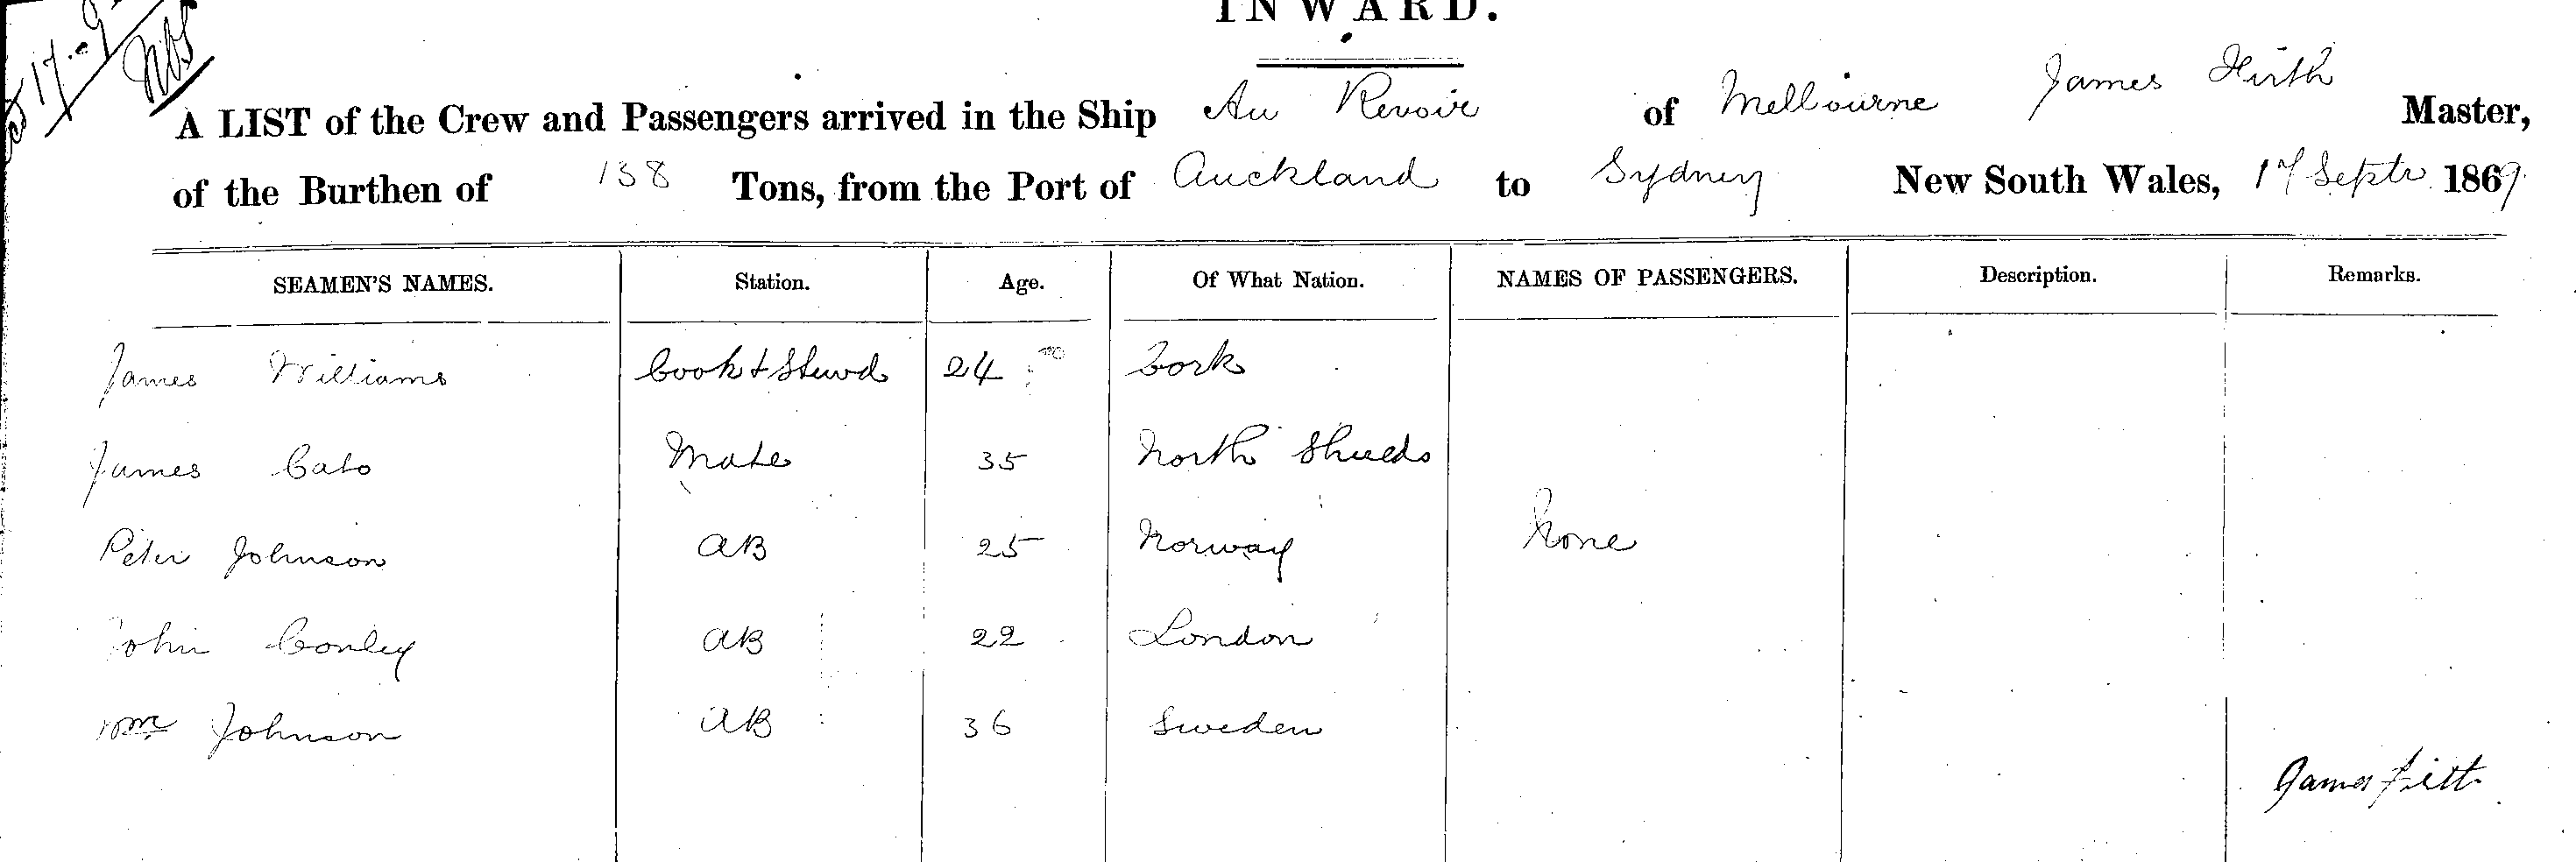 INWARD.
A LIST of the Crew and Passengers arrived in the Ship Au Revoir of Melbourne James Firth Master,
of the Burthen of 138 Tons, from the Port of Auckland to Sydney New South Wales, 17 Septr 1869.
SEAMEN'S NAMES. Station. Age. Of What Nation. NAMES OF PASSENGERS. Description. Remarks.
James Williams Cook & Stewd 24 Cork
James Cato Mate 35 North Shields
Peter Johnson AB 25 Norway None
John Conley AB 22 London
Wm Johnson AB 36 Sweden
James